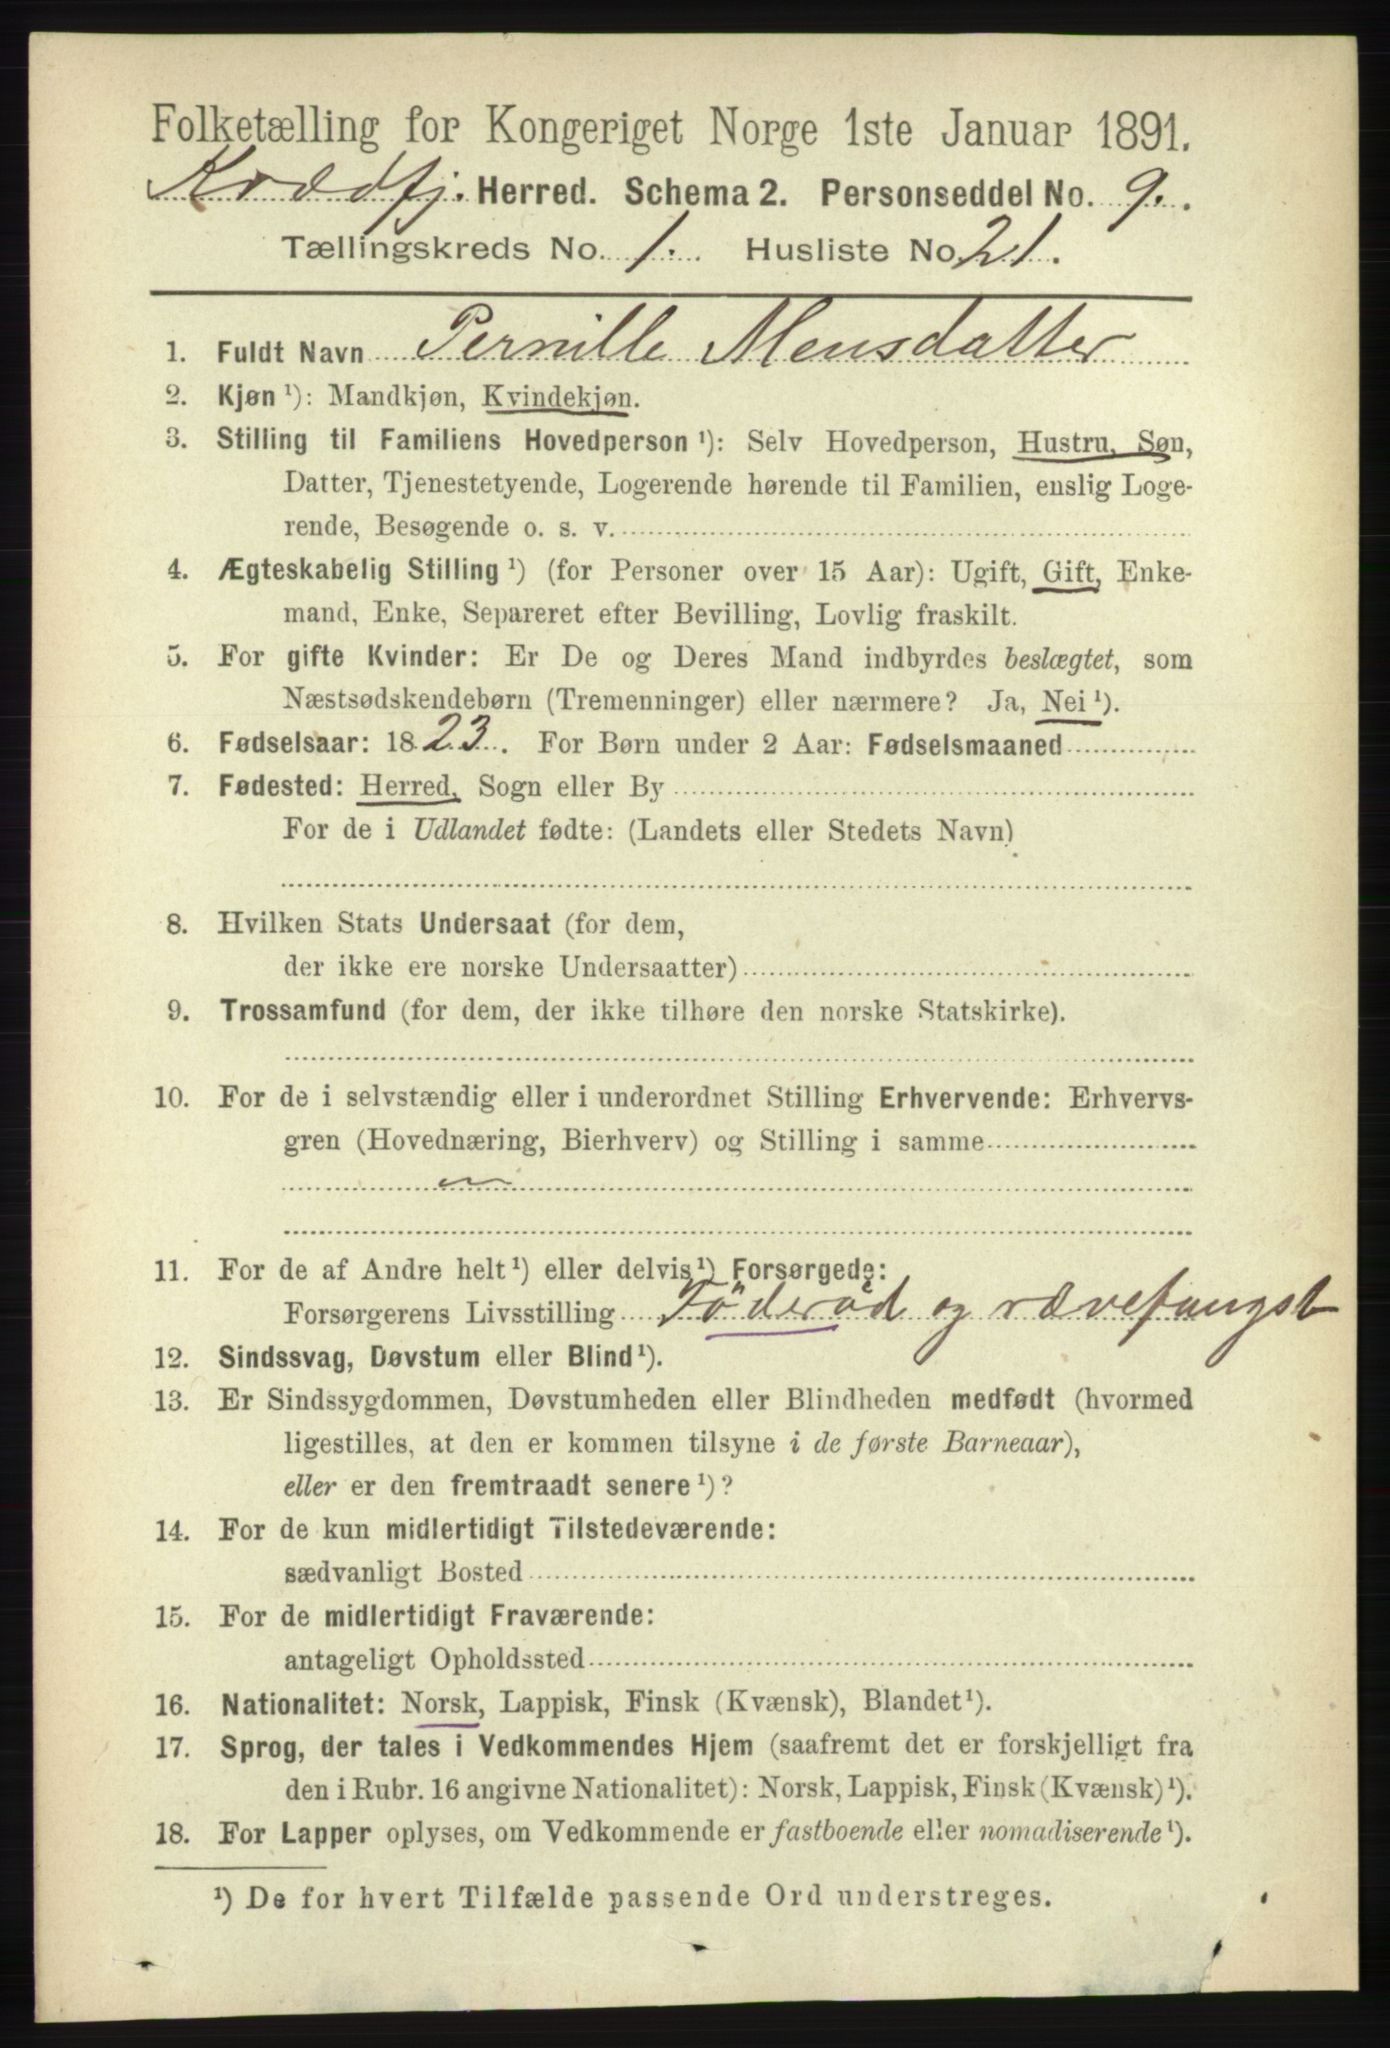 Folketælling for Kongeriget Norge 1ste Januar 1891.
Kvædfj. Herred. Schema 2. Personseddel No. 9.
Tællingskreds No. 1. Husliste No. 21.
1. Fuldt Navn Pernille Monsdatter
2. Kjøn ¹): Mandkjøn, Kvindekjøn.
3. Stilling til Familiens Hovedperson ¹): Selv Hovedperson, Hustru, Søn,
Datter, Tjenestetyende, Logerende hørende til Familien, enslig Loge-
rende, Besøgende o. s. v.
4. Ægteskabelig Stilling ¹) (for Personer over 15 Aar): Ugift, Gift, Enke-
mand, Enke, Separeret efter Bevilling, Lovlig fraskilt.
5. For gifte Kvinder: Er De og Deres Mand indbyrdes beslægtet, som
Næstsødskendebørn (Tremenninger) eller nærmere? Ja, Nei ¹).
6. Fødselsaar: 1823. For Børn under 2 Aar: Fødselsmaaned
7. Fødested: Herred, Sogn eller By
For de i Udlandet fødte: (Landets eller Stedets Navn)
8. Hvilken Stats Undersaat (for dem,
der ikke ere norske Undersaatter)
9. Trossamfund (for dem, der ikke tilhøre den norske Statskirke).
10. For de i selvstændig eller i underordnet Stilling Erhvervende: Erhvervs-
gren (Hovednæring, Bierhverv) og Stilling i samme
11. For de af Andre helt ¹) eller delvis ¹) Forsørgede:
Forsørgerens Livsstilling Föderåd og rævefangst
12. Sindssvag, Døvstum eller Blind ¹).
13. Er Sindssygdommen, Døvstumheden eller Blindheden medfødt (hvormed
ligestilles, at den er kommen tilsyne i de første Barneaar),
eller er den fremtraadt senere ¹)?
14. For de kun midlertidigt Tilstedeværende:
sædvanligt Bosted
15. For de midlertidigt Fraværende:
antageligt Opholdssted
16. Nationalitet: Norsk, Lappisk, Finsk (Kvænsk), Blandet ¹).
17. Sprog, der tales i Vedkommendes Hjem (saafremt det er forskjelligt fra
den i Rubr. 16 angivne Nationalitet): Norsk, Lappisk, Finsk (Kvænsk) ¹).
18. For Lapper oplyses, om Vedkommende er fastboende eller nomadiserende ¹).
¹) De for hvert Tilfælde passende Ord understreges.